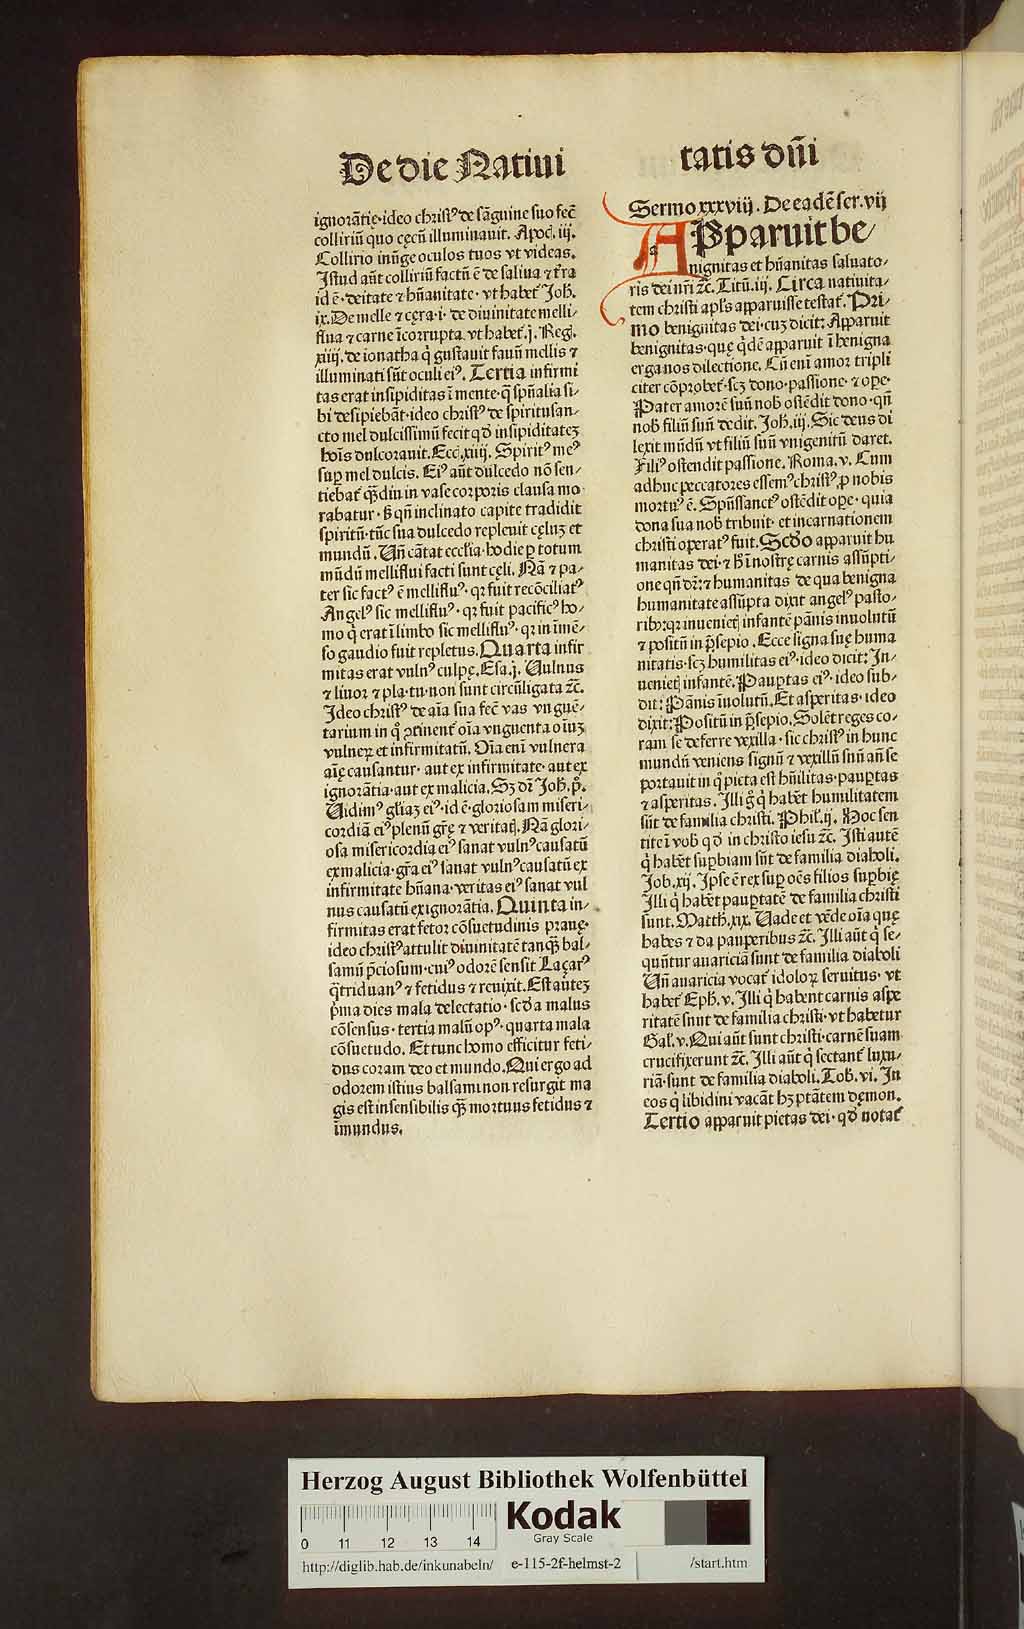 De die Natiui
tatis dn̄i
ignorātię·ideo christꝰ de sāguine suo fec̄
colliriū quo cęcū illuminauit. Apoc̄. iij.
Collirio inūge oculos tuos vt videas.
Istud aūt colliriū factū ē de saliua ⁊ tr̄ra
id ē·deitate ⁊ hūanitate·vt habet᷑ Joh̄.
ix. De melle ⁊ cęra·i·de diuinitate melli-
flua ⁊ carne īcorrupta. vt habet᷑.j. Reḡ.
xiiij. de ionatha q̇ gustauit fauū mellis ⁊
illuminati sūt oculi eiꝰ. Tertia infirmi
tas erat insipiditas ī mente·q̇ spūalia si-
bi desipiebāt·ideo christꝰ de spiritusan-
cto mel dulcissimū fecit qd̄ insipiditatez
hoīs dulcorauit. Ecc̄.xiiij. Spiritꝰ meꝰ
suꝑ mel dulcis. Eiꝰ aūt dulcedo nō sen-
tiebat᷑ qͣ̄diu in vase corporis clausa mo-
rabatur·sꝫ qn̄ inclinato capite tradidit
spiritū·tūc sua dulcedo repleuit cęluꝫ et
mundū. Vn̄ cātat eccl̄ia·hodie ꝑ totum
mūdū melliflui facti sunt cęli. Nā ⁊ pa-
ter sic factꝰ ē mellifluꝰ·qꝛ fuit recōciliatꝰ
Angelꝰ sic melliflu ꝰ·qꝛ fuit pacificꝰ ho-
mo q̇ erat ī limbo sic melliflu ꝰ·qꝛ in īmē-
so gaudio fuit repletus. Quarta infir
mitas erat vulnꝰ culpę. Esa.j. Vulnus
⁊ liuor ⁊ pla·tu·non sunt circūligata ⁊c̄.
Ideo christꝰ de aīa sua fec̄ vas vnguē-
tarium in qͦ ꝯtinent᷑ oīa vnguenta oīuꝫ
vulneꝝ et infirmitatū. Oīa enī vulnera
aīę causantur·aut ex infirmitate·aut ex
ignorātia·aut ex malicia. Sꝫ dr̄ Joh̄.pͦ.
Vidimꝰ gl̄iaꝫ eiꝰ·id ē·gloriosam miseri-
cordiā eiꝰ plenū gr̄ę ⁊ veritatꝭ. Nā glori-
osa misericordia eiꝰ sanat vulnꝰ causatū
ex malicia·gr̄a eiꝰ sanat vulnꝰ causatū ex
infirmitate hūana·veritas eiꝰ sanat vul
nus causatū ex ignorātia. Quinta in-
firmitas erat fetor cōsuetudinis prauę·
ideo christꝰ attulit diuinitatē tanqͣ̄ bal-
samū p̄ciosum·cuiꝰ odorē sensit Laçarꝰ
qͣ̄triduanꝰ ⁊ fetidus ⁊ reuixit. Est auteꝫ
pͥma dies mala delectatio·scd̄a malus
cōsensus·tertia malū opꝰ·quarta mala
cōsuetudo. Et tunc homo efficitur feti-
dus coram deo et mundo. Qui ergo ad
odorem istius balsami non resurgit ma
gis est insensibilis qͣ̄ mortuus fetidus ⁊
īmundus.
Sermo xxxviij. De eadē ser. vij
APparuit be-
nignitas et hūanitas saluato-
ris dei nr̄i ⁊c̄. Titū.iij. Circa natiuita-
tem christi apl̄s apparuisse testat᷑. Pri-
mo benignitas dei·cuꝫ dicit: Apparuit
benignitas·quę qͥdē apparuit ī benigna
erga nos dilectione. Cū enī amor tripli
citer cōprobet᷑·scꝫ dono·passione·⁊ oꝑe·
Pater amorē suū nob̄ ostēdit dono·qn̄
nob̄ filiū suū dedit. Joh̄.iij. Sic deus di
lexit mūdū vt filiū suū vnigenitū daret.
Filiꝰ ostendit passione. Roma.v. Cum
adhuc peccatores essemꝰ christꝰ ꝓ nobis
mortuꝰ ē. Spūssanctꝰ ostēdit oꝑe·quia
dona sua nob̄ tribuit·et incarnationem
christi operatꝰ fuit. Scd̄o apparuit hu
manitas dei·⁊ h̄ ī nostrę carnis assūpti-
one qn̄ dr̄: ⁊ humanitas de qua benigna
humanitate assūpta dixit angelꝰ pasto-
ribꝰ: qꝛ inuenietꝭ infantē pānis inuolutū
⁊ positū in p̄sepio. Ecce signa suę huma
nitatis·scꝫ humilitas eiꝰ·ideo dicit: In-
uenietꝭ infantē. Pauꝑtas eiꝰ·ideo sub-
dit: Pānis īuolutū. Et asperitas·ideo
dixit: Positū in p̄sepio. Solēt reges co-
ram se deferre vexilla·sic christꝰ in hunc
mundū veniens signū ⁊ vexillū suū an̄ se
portauit in qͦ picta est hūilitas·pauꝑtas
⁊ asperitas. Illi gͦ q̇ habēt humilitatem
sūt de familia christi. Phil̄.ij. Hoc sen
tite ī vob̄ qd̄ in christo iesu ⁊c̄. Isti autē
q̇ habēt suꝑbiam sūt de familia diaboli.
Job.xij. Ipse ē rex suꝑ oēs filios suꝑbię
Illi q̇ habēt pauꝑtatē de familia christi
sunt. Matth̄.xix. Vade et vēde oīa quę
habes ⁊ da pauperibus ⁊c̄. Illi aūt q̇ se-
quūtur auariciā sunt de familia diaboli
Vn̄ auaricia vocat᷑ idoloꝝ seruitus·vt
habet᷑ Eph̄.v. Illi q̇ habent carnis aspe
ritatē sunt de familia christi·vt habetur
Gal̄.v. Qui aūt sunt christi·carnē suam
crucifixerunt ⁊c̄. Illi aūt q̇ sectant᷑ luxu-
riā·sunt de familia diaboli. Tob̄.vi. In
eos q̇ libidini vacāt hꝫ ptātem dęmon.
Tertio apparuit pietas dei·qd̄ notat᷑
Herzog August Bibliothek Wolfenbüttel
Kodak
Gray Scale
0 11 12 13 14
http://diglib.hab.de/inkunabeln/ e-115-2f-helmst-2 /start.htm